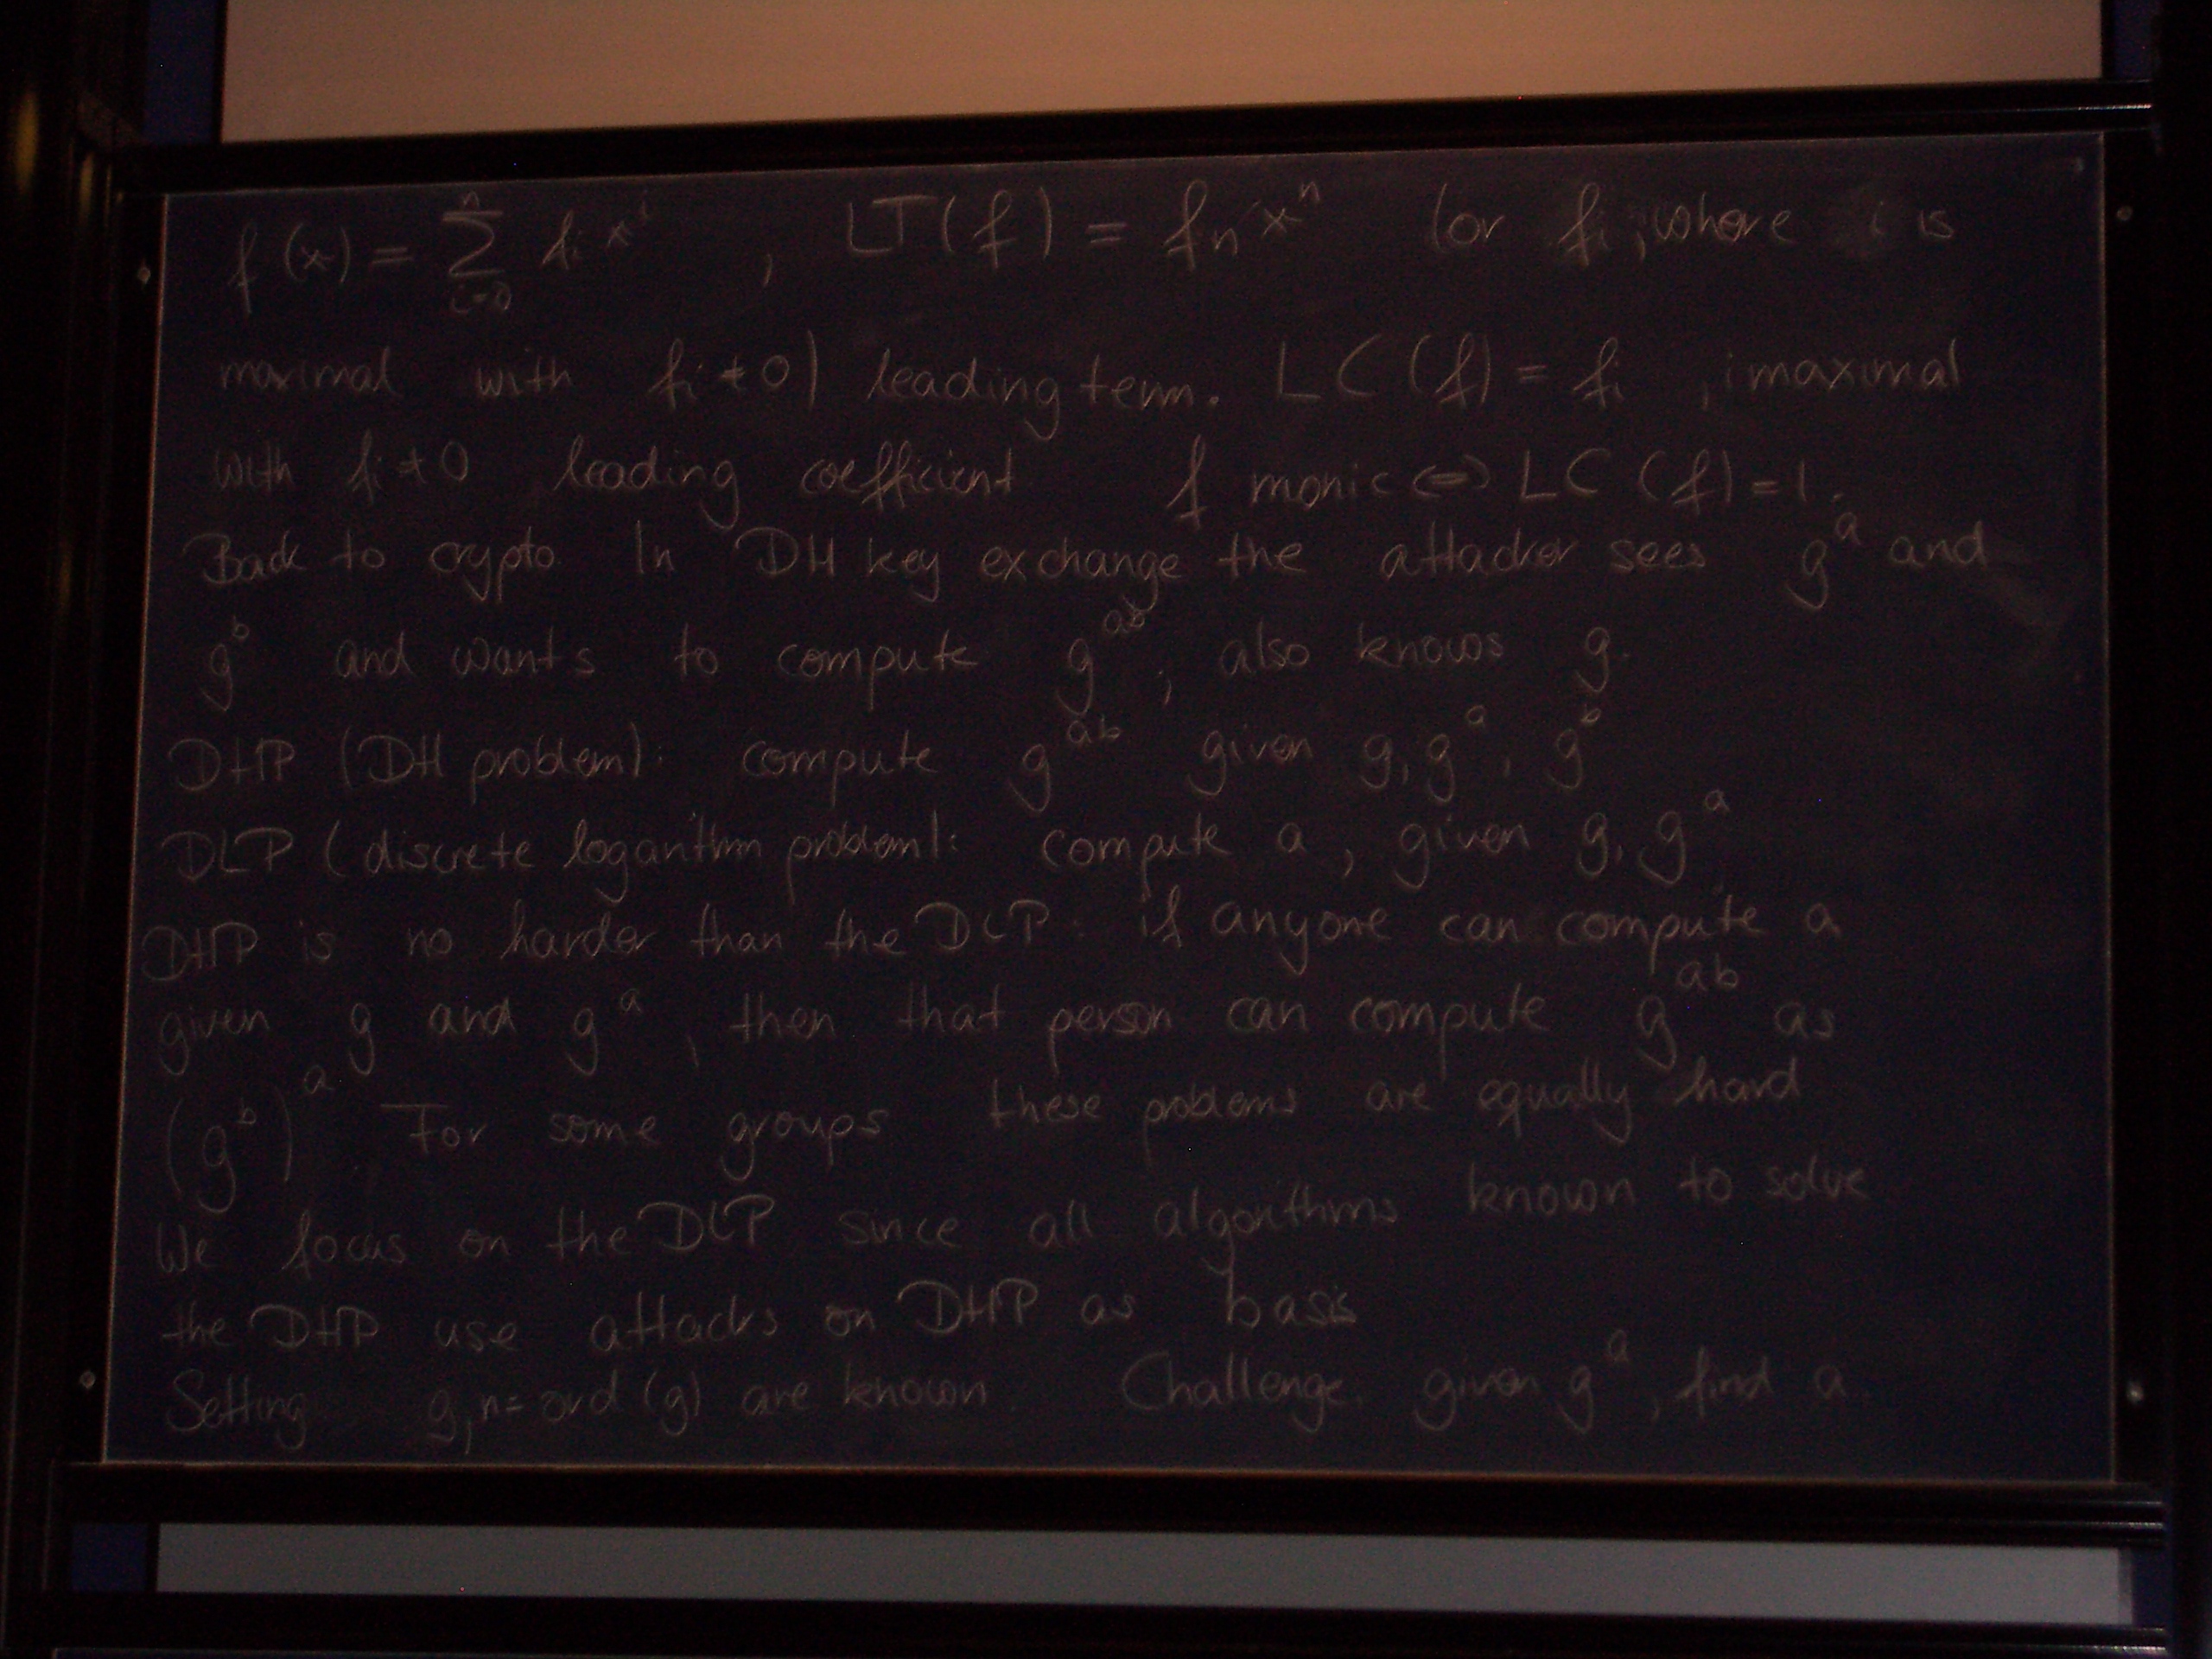 f(x) = ∑_{i=0}^{n} f_i x^i , LT(f) = f_n x^n (or f_i, where i is
maximal with f_i ≠ 0) leading term. LC(f) = f_i , i maximal
with f_i ≠ 0 leading coefficient f monic ⇔ LC(f) = 1.
Back to crypto. In DH key exchange the attacker sees g^a and
g^b and wants to compute g^{ab}, also knows g.
DHP (DH problem): compute g^{ab} given g, g^a, g^b
DLP (discrete logarithm problem): compute a, given g, g^a
DHP is no harder than the DLP: if anyone can compute a
given g and g^a, then that person can compute g^{ab} as
(g^b)^a. For some groups these problems are equally hard
We focus on the DLP since all algorithms known to solve
the DHP use attacks on DHP as basis
Setting g, n = ord(g) are known. Challenge. given g^a, find a.